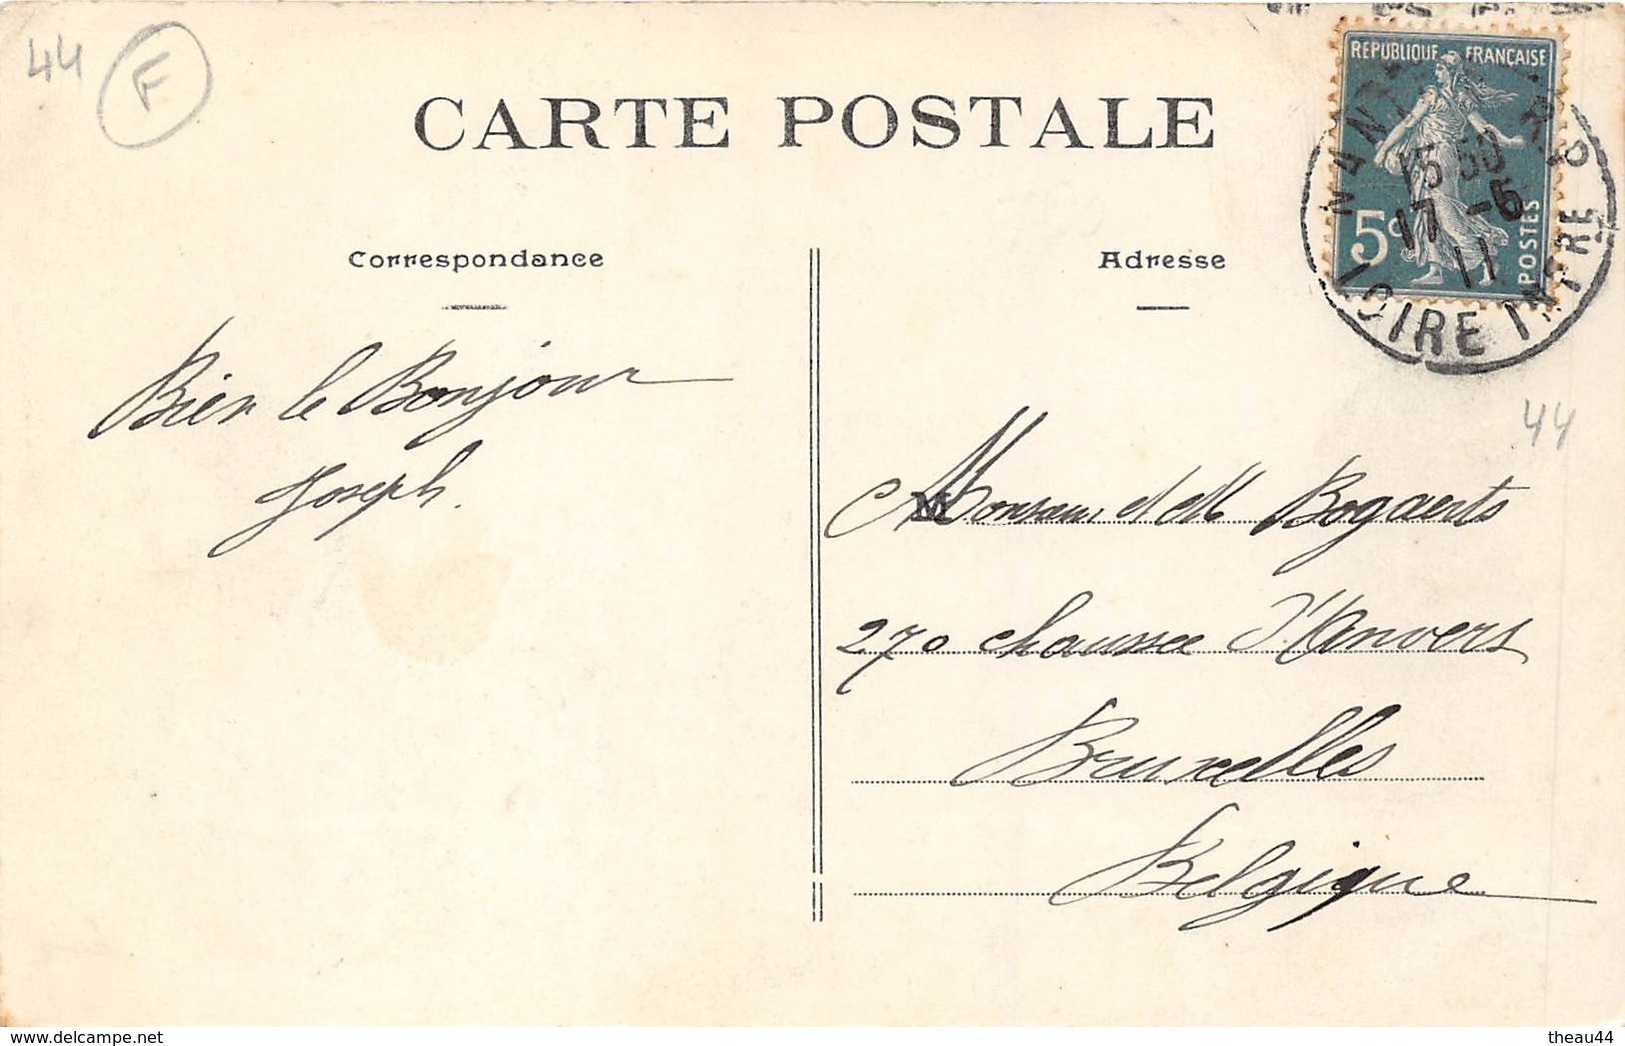 44
F
CARTE POSTALE
REPUBLIQUE FRANÇAISE
5c
POSTES
15 50
17 -6
11
LOIRE INFRE
Correspondance
Adresse
Bien le Bonjour
Joseph.
44
Monsieur et M Bogaerts
270 chaussee d'Anvers
Bruxelles
Belgique
www.delcampe.net
theau44